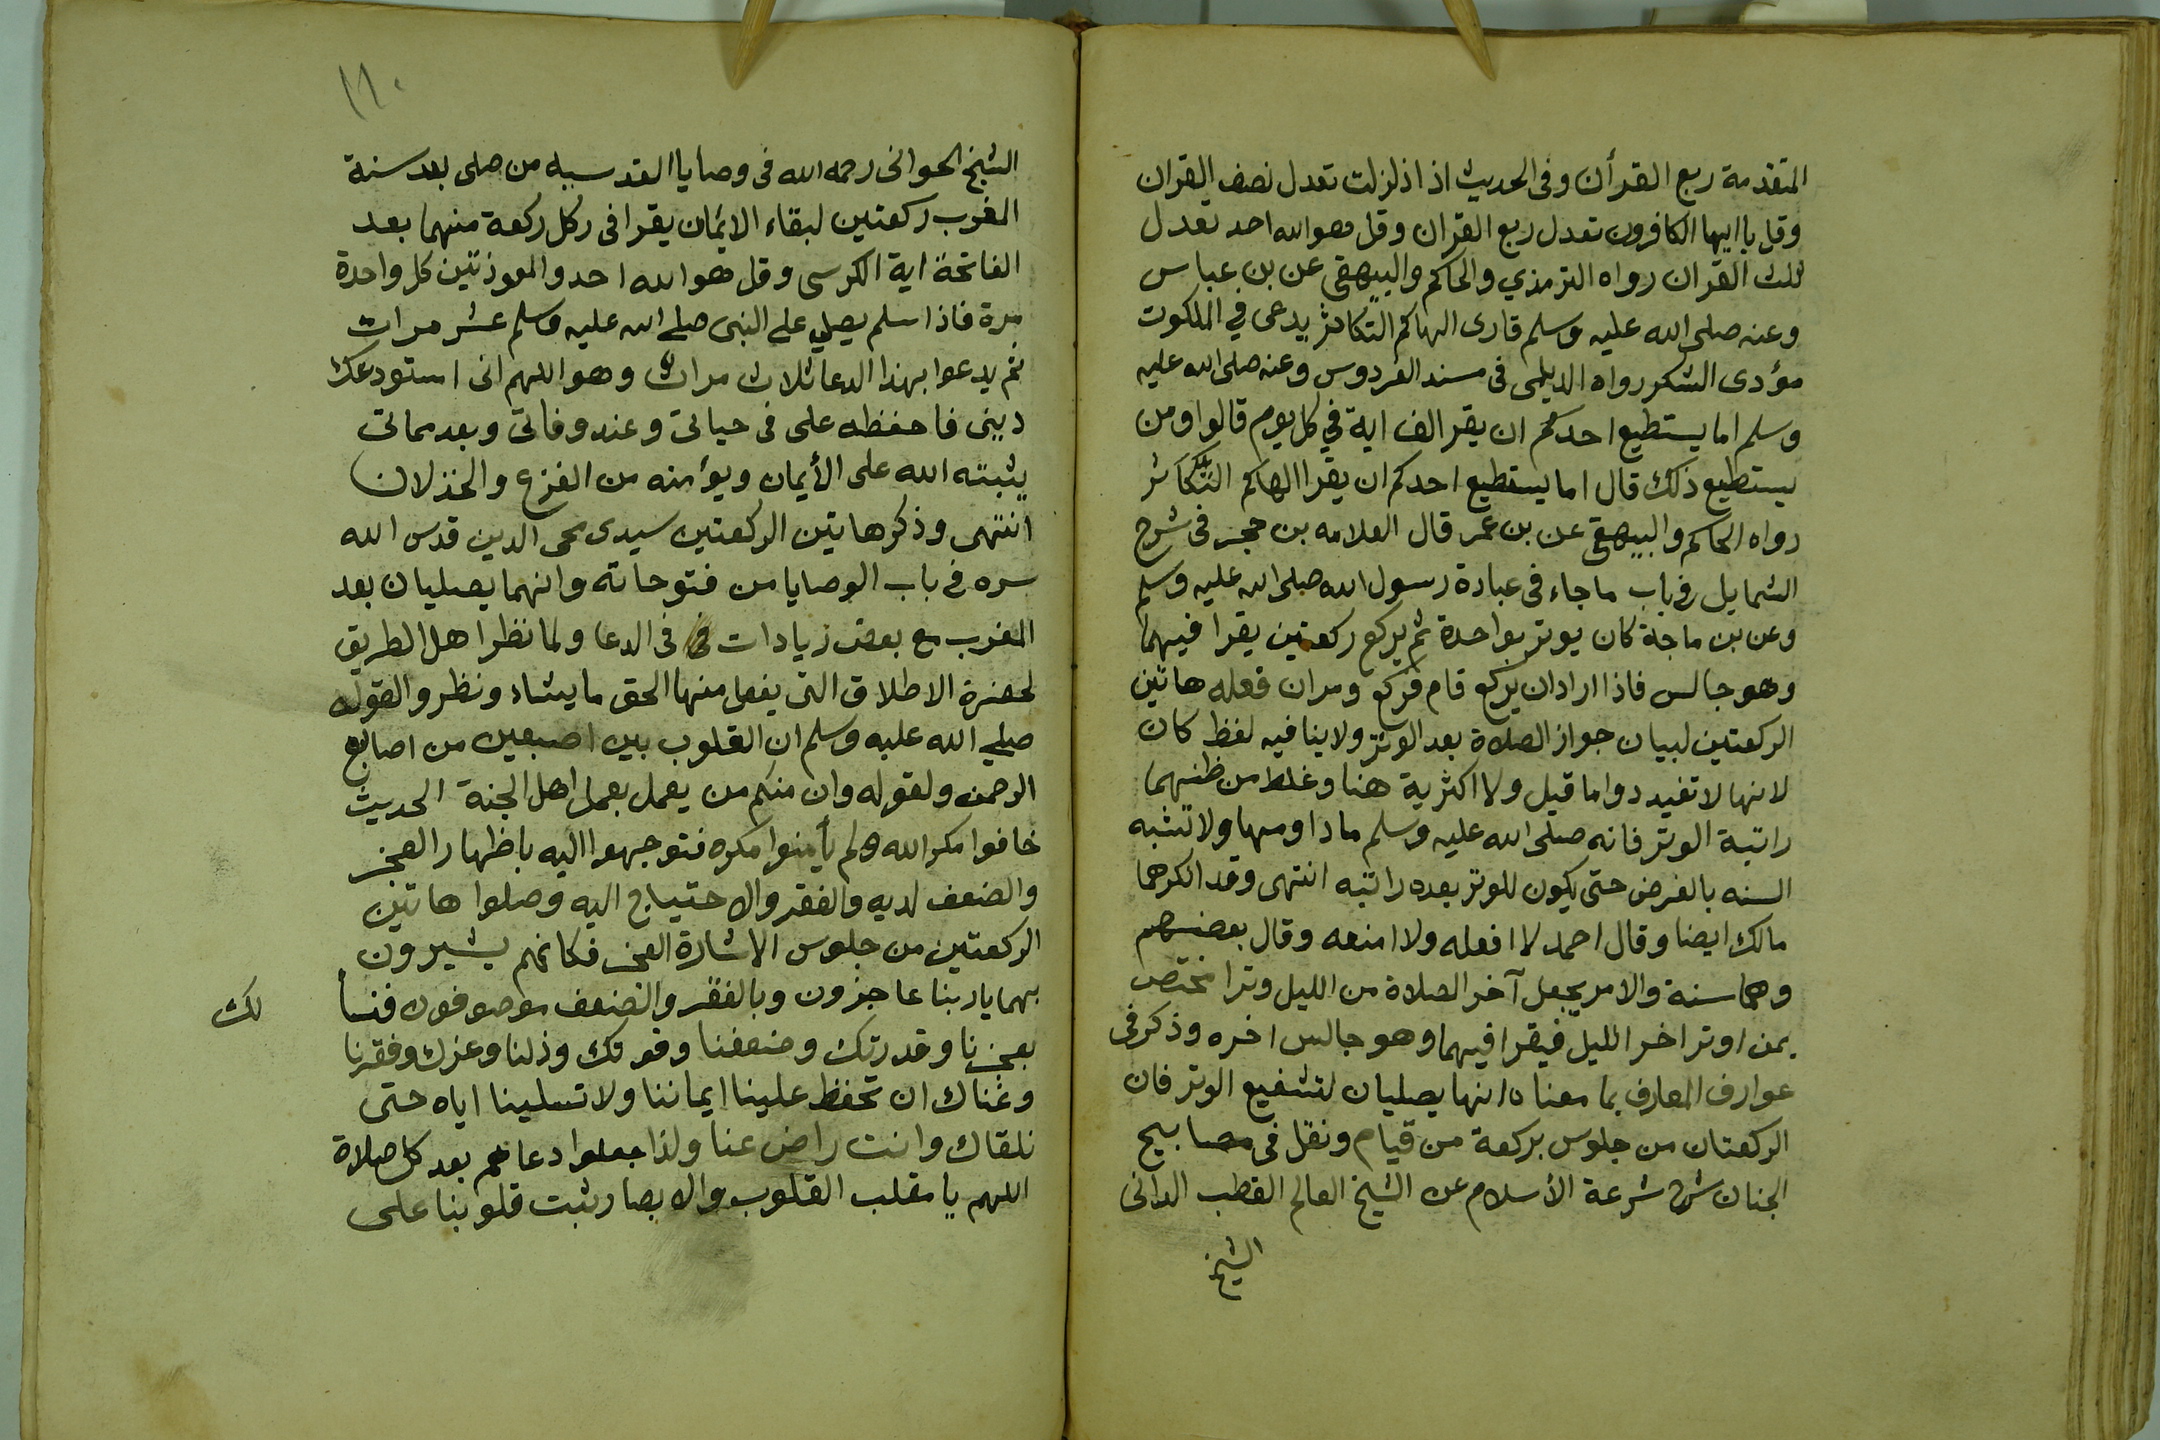 المتقدمة ربع القرأن وفى الحديث اذا زلزلت تعدل نصف القران
وقل ياايها الكافرون تعدل ربع القران وقل هو الله احد تعدل
ثلث القران رواه الترمذي والحاكم والبيهقى عن بن عباس
وعنه صلى الله عليه وسلم قارى الهاكم التكاثر يدعى في الملكوت
مؤدى الشكر رواه الديلمى فى مسند الفردوس وعنه صلى الله عليه
وسلم اما يستطيع احدكم ان يقر الف اية في كل يوم قالوا ومن
يستطيع ذلك قال اما يستطيع احدكم ان يقرا الهاكم التكاثر
رواه الحاكم والبيهقى عن بن عمر قال العلامه بن حجر فى شرح
الشمايل فى باب ما جاء فى عبادة رسول الله صلى الله عليه وسلم
وعن بن ماجة كان يوتر بواحدة ثم يركع ركعتين يقرا فيهما
وهو جالس فاذا اراد ان يركع قام فركع ومران فعله هاتين
الركعتين لبيان جواز الصلاة بعد الوتر ولا ينافيه لفظ كان
لانها لا تفيد دواما قيل ولا اكثرية هنا وغلط من ظنهما
راتبة الوتر فانه صلى الله عليه وسلم ما داومها ولا تشبه
السنه بالفرض حتى يكون للوتر بعده راتبه انتهى وقد انكرهما
مالك ايضا وقال احمد لا افعله ولا امنعه وقال بعضهم
وهما سنة والامر يجعل آخر الصلاة من الليل وترا مختص
بمن اوتر اخر الليل فيقرا فيهما وهو جالس اخره وذكر فى
عوارف المعارف بما معناه انهما يصليان لتشفيع الوتر فان
الركعتان من جلوس بركعة من قيام ونقل فى مصابيح
الجنان شرح شرعة الأسلام عن الشيخ العالم القطب الدانى
الشيخ
١٦٠
الشيخ الحوانى رحمه الله فى وصاياالقدسيه من صلى بعد سنة
المغرب ركعتين لبقاء الايمان يقرا فى كل ركعة منهما بعد
الفاتحة اية الكرسى وقل هو الله احد والموذتين كل واحدة
مرة فاذا سلم يصلي على النبى صلى الله عليه وسلم عشر مرات
ثم يدعوا بهذا الدعا ثلاث مرات وهو اللهم انى استودعك
دينى فاحفظه على فى حياتى وعند وفاتى وبعد مماتى
يثبته الله على الأيمان ويؤمنه من الفزع والخذلان
انتهى وذكر هاتين الركعتين سيدى محى الدين قدس الله
سره فى باب الوصايا من فتوحاته وانهما يصليان بعد
المغرب مع بعض زيادات فى الدعا ولما نظر اهل الطريق
لحضرة الاطلاق التى يفعل منها الحق ما يشاء ونظروا لقوله
صلى الله عليه وسلم ان القلوب بين اصبعين من اصابع
الرحمن ولقوله وان منكم من يعمل بعمل اهل الجنة الحديث
خافوا مكر الله ولم يأمنوا مكره فتوجهوا اليه باظهار العجز
والضعف لديه والفقر والاحتياج اليه وصلوا هاتين
الركعتين من جلوس الاشارة العجز فكانهم يشيرون
بهما ياربنا عاجزون وبالفقر والضعف موصوفون فنسأ لك
بعجزنا وقدرتك وضعفنا وقوتك وذلنا وعزك وفقرنا
وغناك ان تحفظ علينا ايماننا ولا تسلبنا اياه حتى
نلقاك وانت راض عنا ولذا جعلوا دعاهم بعد كل صلاة
اللهم يا مقلب القلوب والابصار ثبت قلوبنا على